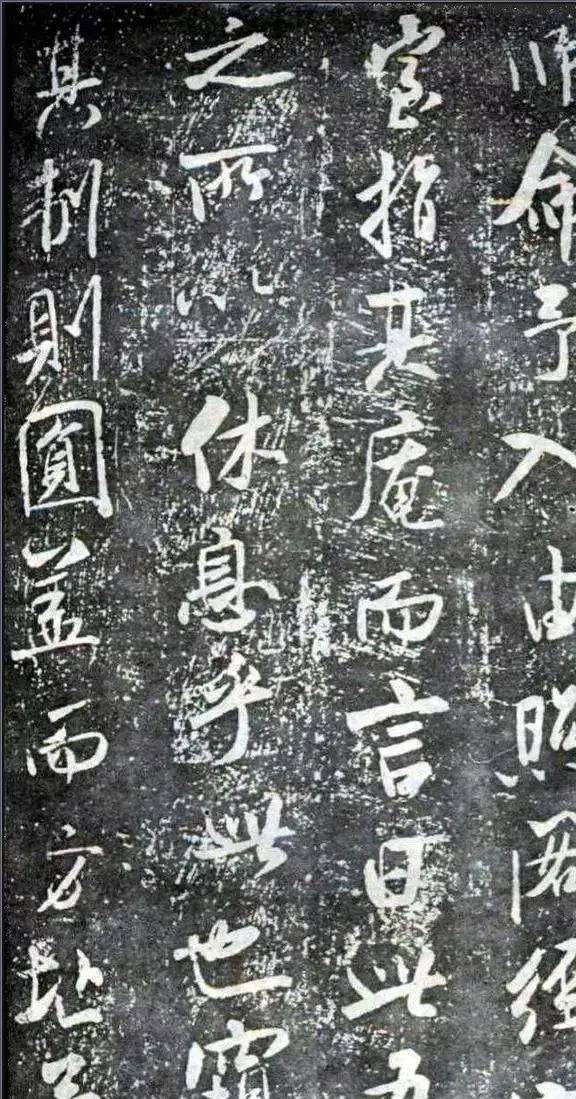 師命予入由照閣經
室指其庵而言曰此吾
之所以休息乎此也
其制則圓蓋而方址